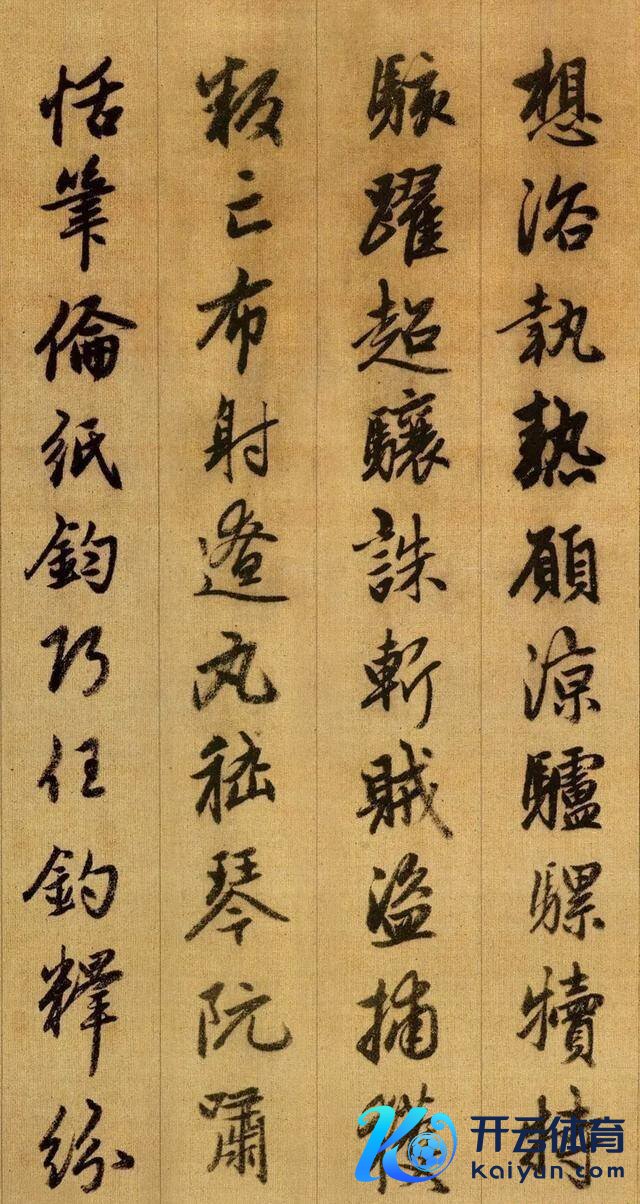 想浴執熱願涼驢騾犢特
駭躍超驤誅斬賊盜捕獲
叛亡布射遼丸嵇琴阮嘯
恬筆倫紙鈞巧任釣釋紛
开云体育
kaiyun.com